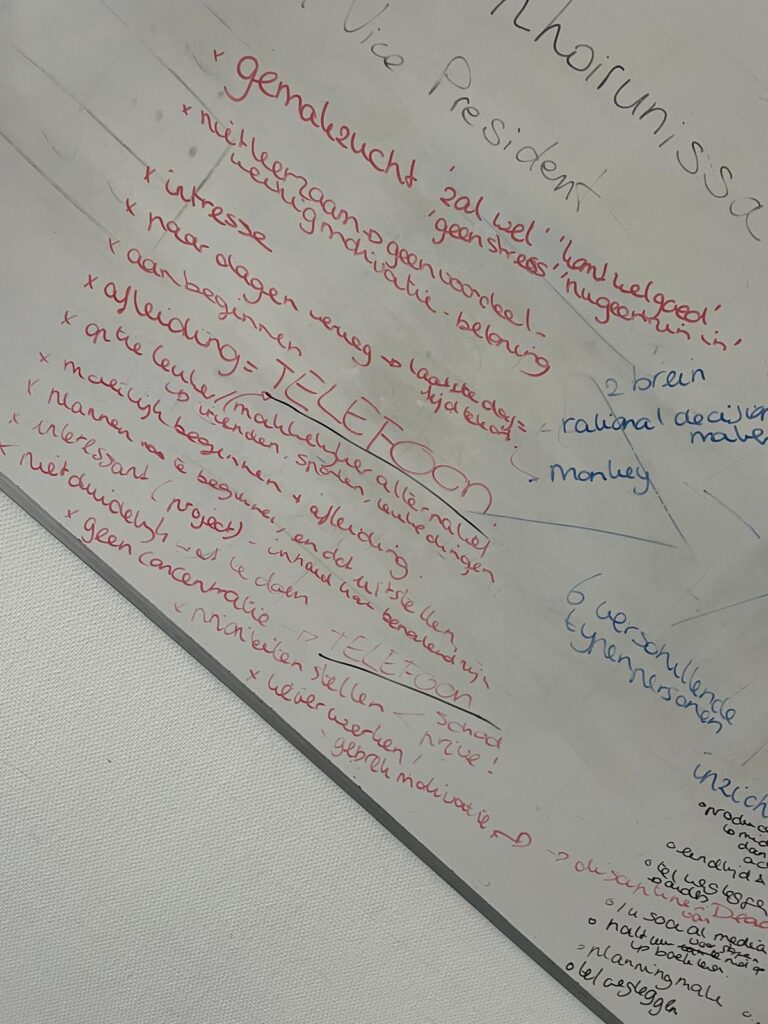 Khoirunissa
Vice President
x gemakzucht 'zal wel' 'komt wel goed'
'geen stress' 'nu geen zin in'
x niet leerzaam → geen voordeel -
weinig motivatie - beloning
x intresse
x paar dagen → laatste dag =
x aan beginnen
x afleiding = TELEFOON
x optie leuker / makkelijker alternatief
↳ vrienden, sporten, leuke dingen
x moeilijk beginnen + afleiding.
x plannen te beginnen, en dat uitstellen,
x interessant (project) - inhoud kan bepalend zijn
x niet duidelijk wat te doen
x geen concentratie → TELEFOON
x prioriteiten stellen < school
privé!
x liever werken!
gebrek motivatie → → discipline
2 brein
- rational decision
maker
- monkey
6 verschillende
typen personen
inzich
o produc
o eindtijd &
o tel wegleggen
o 1u social media
o half uur
↳ boek lezen.
o planning make
o tel wegleggen